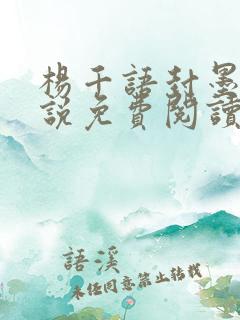 楊千語封墨
說免費閱讀
語溪
未經同意禁止轉載